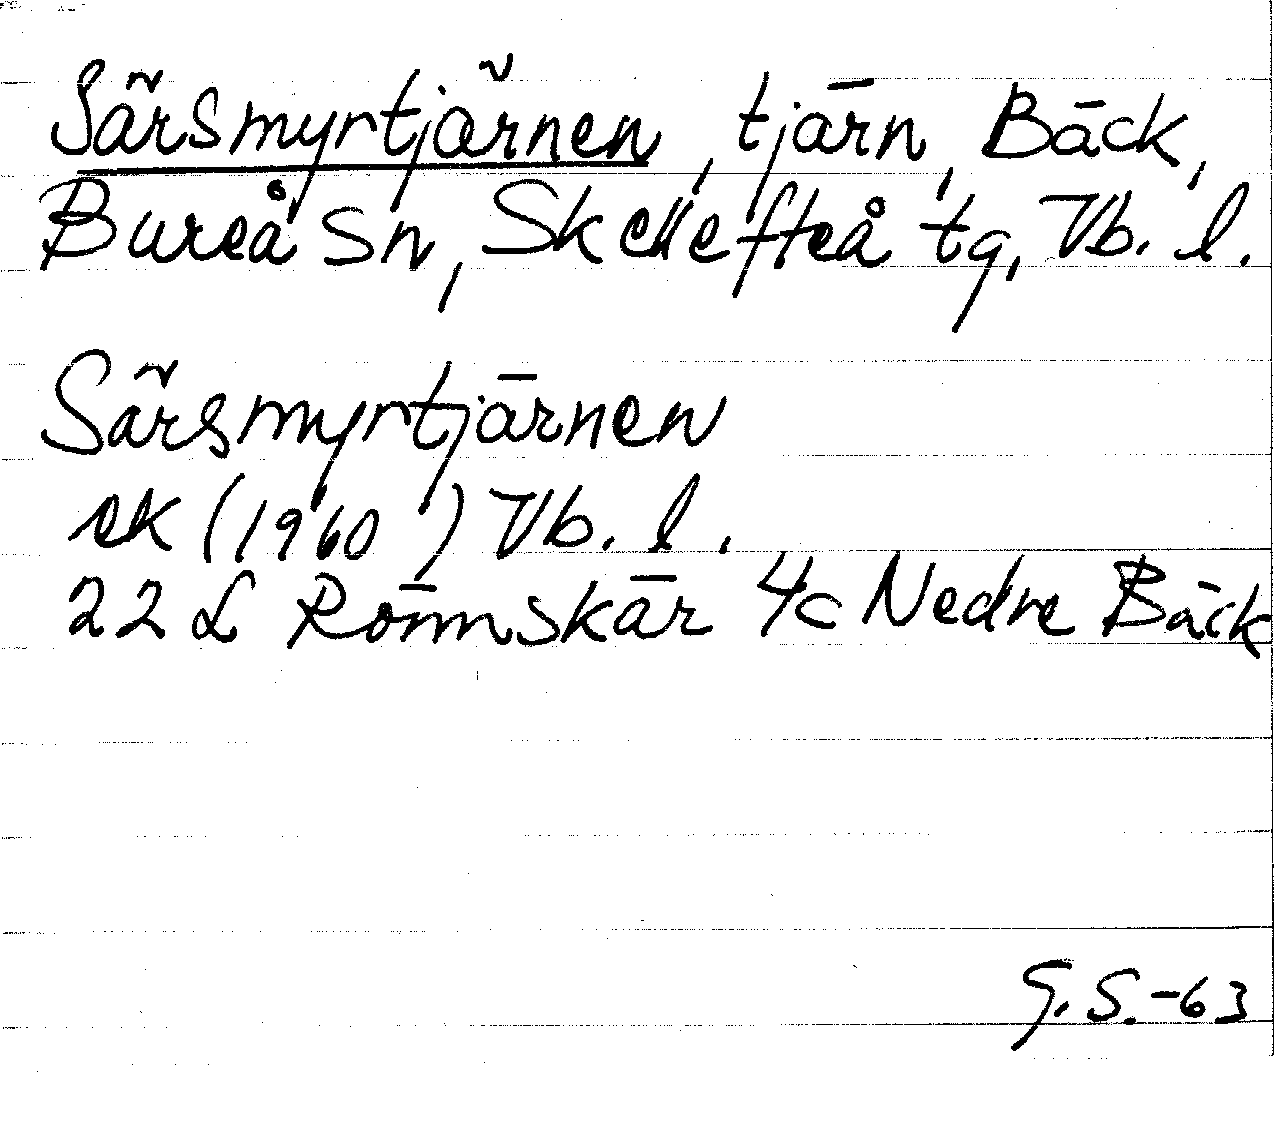 Särsmyrtjärnen, tjärn, Bäck,
Bureå sn, Skellefteå tg, Vb. l.
Särsmyrtjärnen
ek (1960) Vb. l.
22 L Rönnskär 4c Nedre Bäck
G. S. -63